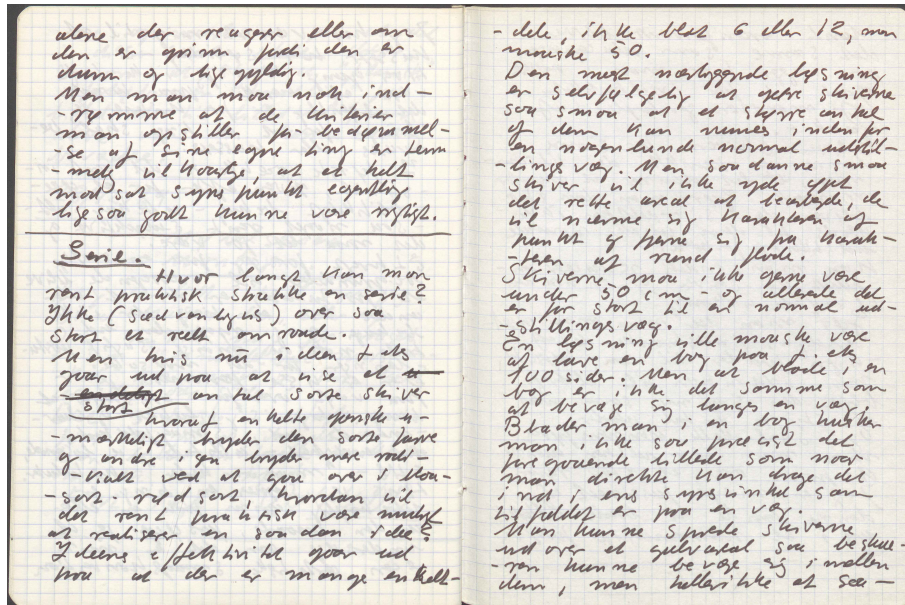 alene der reagerer eller om
den er grim fordi den er
dum og ligegyldig.
Men man maa nok ind-
-rømme at de kriterier
man opstiller for bedømmel-
-se af sine egne ting er tem
-melig vilkaarlige, at et helt
modsat synspunkt egentlig
ligesaa godt kunne være rigtigt.
Serie.
Hvor langt kan man
rent praktisk strække en serie?
Ikke (sædvanligvis) over saa
stort et reelt omraade.
Men hvis nu ideen f.eks
gaar ud paa at vise et
endeligt antal sorte skiver
stort
hvoraf enkelte ganske u-
-mærkeligt bryder den sorte farve
og andre igen bryder mere radi-
-kalt ved at gaa over i blaa-
-sort - rødsort, hvordan vil
det rent praktisk være muligt
at realisere en saadan idee?
Ideens effektivitet gaar ud
paa at der er mange enkelt-
-dele, ikke blot 6 eller 12, men
maaske 50.
Den mest nærliggende løsning
er selvfølgelig at gøre skiverne
saa smaa at et større antal
af dem kan rummes inden for
en nogenlunde normal udstil-
-lings væg. Men saadanne smaa
skiver vil ikke yde øjet
det rette areal at bearbejde, de
vil nærme sig karakteren af
punkt og fjerne sig fra karak-
-teren af rund flade.
Skiverne maa ikke gerne være
under 50 cm - og allerede det
er for stort til en normal ud-
-stillingsvæg.
En løsning ville maaske være
at lave en bog paa f. eks
100 sider. Men at blade i en
bog er ikke det samme som
at bevæge sig langs en væg.
Blader man i en bog husker
man ikke saa præcist det
foregaaende billede som naar
man direkte kan drage det
ind i ens synsvinkel som
tilfældet er paa en væg.
Man kunne sprede skiverne
ud over et gulvareal saa beskue-
-ren kunne bevæge sig imellem
dem, men heller ikke et saa-